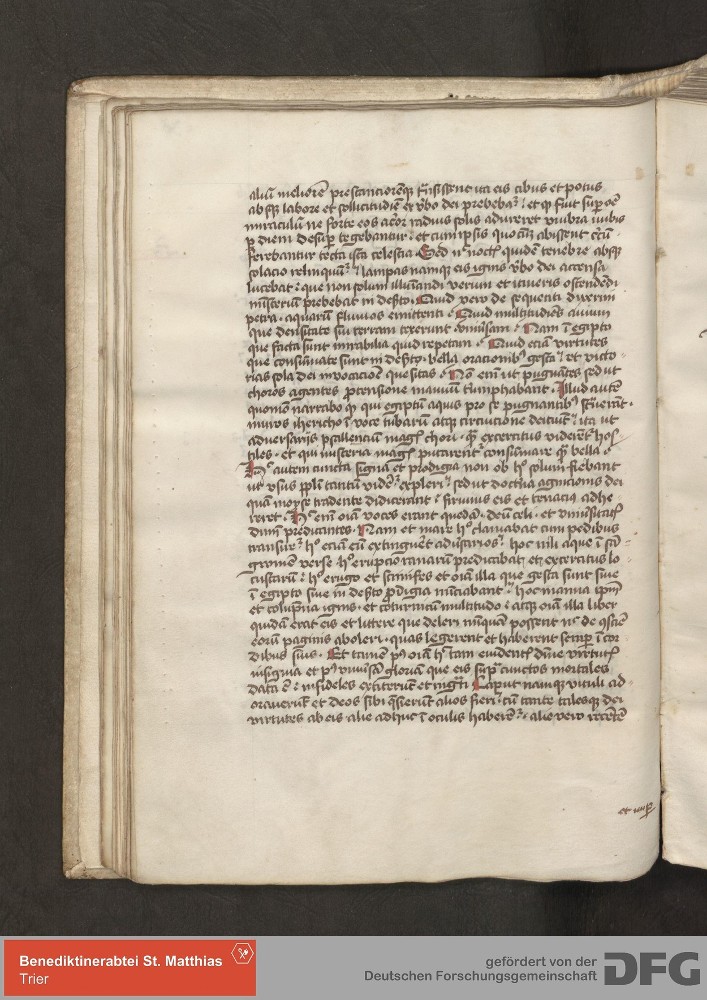 aliū meliorē prestancioremq̄ trāsissent ita eis cibus et potus
absq̄ labore et sollicitudīe et v̓bo dei prebebat᷑ et qd̓ fuit sup̲ oē
miraculū ne forte eos acrior radius solis adureret vmbra nubis
p̲ diem desup̲ tegebantur et cum ipsis quocūq̄ abissent circū
ferebantur tecta ista celestia Sed nec noctis quidē tenebre absq̄
solacio relinquūt᷑ lampas namq̄ eis ignis v̓bo dei accensa
lucebat que non solum illuīandi verum et itineris ostendendi
misterium prebebat in deserto Quid vero de sequenti dixerim
petra aquarū fluuios emittenti Quid multitudinē auium
que densitate sui terram texerunt vniuersam Nam ī egipto
que facta sunt mirabilia quid repetam Quid etiā virtutes
que consūmate sunt in deserto bella oracionib᷒ gesta et victo
rias sola dei inuocacione quesitas Nō enī ut pugnātes sed ut
choros agentes p̲tensione manuum triumphabant Illud autē
quomō narrabo qd̓ qui egiptū aquis pro se pugnantib᷒
muros iherichō ī voce tubarum atq̄ circuicione deiciūt ita ut
aduersarijs psallencium magis chori q̄ exercitus viderent᷑ hos
tiles et qui misteria magis putarent᷑ consūmare q̄ bella
Hec autem cuncta signa et prodigia non ob hoc solum fiebant
ut vsus pp̄li tantum viderent᷑ expleri sed ut doctrīa agnicionis dei
quā moyse tradente didicerant firmius eis et tenacius adhe
reret Hec enī oīa voces erant quedā deū celi et vniuersitatis
dnm̄ predicantes Nam et mare hoc clamabat cum pedibus
transiret᷑ hoc etiā cū extingueret aduersarios hoc nili aque ī sā
gwinem verse hoc erupcio ranarū predicabat et exercitus lo
custarū hoc erugo et scinifes et oīa illa que gesta sunt siue
ī egipto siue in deserto prodigia nūciabant hoc manna ipm̄
et columpna ignis et coturnicū multitudo atq̄ oīa illa liber
quidā erat eis et littere que deleri nunquā possent nec de consciē
eorū paginis aboleri quas legerent et haberent semp̲ ī cor
dibus suis Et tamen post oīa hec tam euidentis dīne virtutis
insignia et post vniuersā gloriam que eis sup̲ cunctos mortales
data ē infideles extiterunt et ingrati Caput namq̄ vituli ad
orauerunt et deos sibi quesierunt alios fieri cū tante talesq̄ dei
virtutes ab eis alie adhuc ī oculis haberent᷑ alie vero recētē
et nup̲
Benediktinerabtei St. Matthias
Trier
gefördert von der
Deutschen Forschungsgemeinschaft
DFG